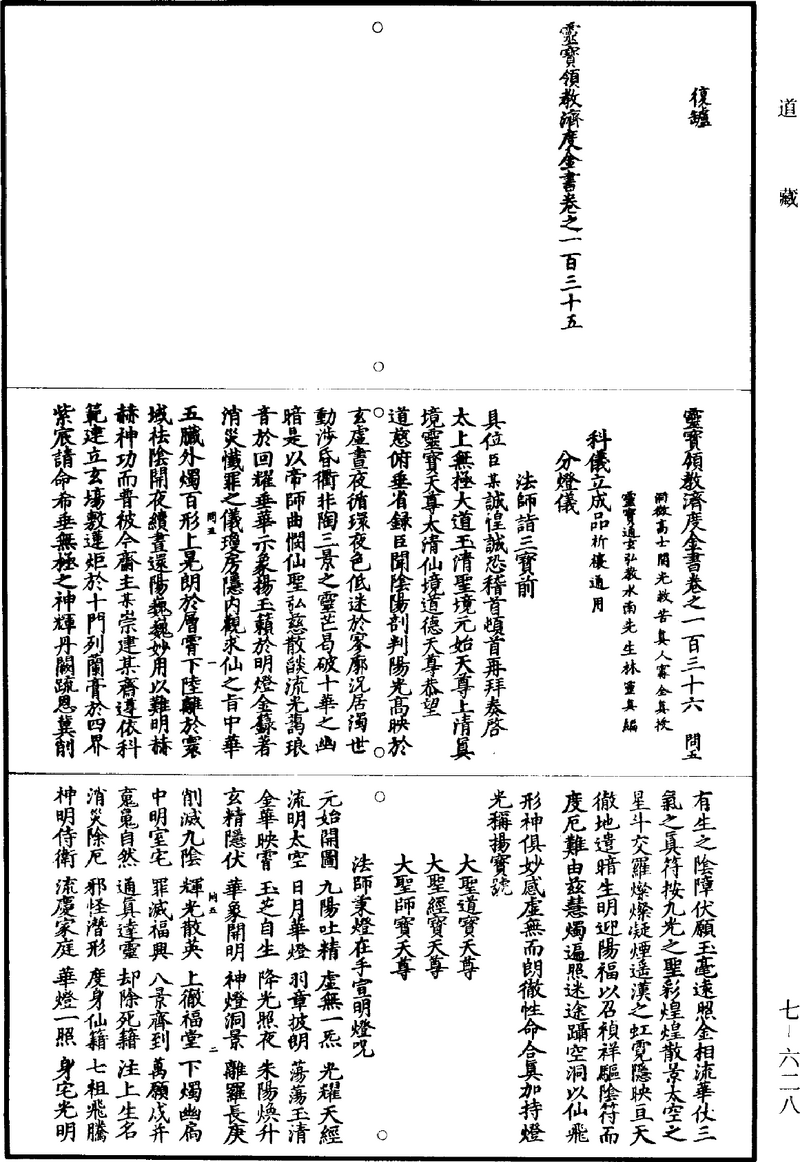 道藏
復鑪
靈寶領教濟度金書卷之一百三十五
靈寶領教濟度金書卷之一百三十六 問五
洞微高士開光救苦真人甯全真授
靈寶通玄弘教水南先生林靈真編
科儀立成品祈禳通用
分燈儀
法師詣三寶前
具位臣某誠惶誠恐稽首頓首再拜奏啓
太上無極大道玉清聖境元始天尊上清真
境靈寶天尊太清仙境道德天尊恭望
道慈俯垂省錄臣聞陰陽剖判陽光高映於
玄虛晝夜循環夜色低迷於寥廓況居濁世
動涉昏衢非陶三景之靈芒曷破十華之幽
暗是以帝師曲憫仙聖弘慈散燄流光藹琅
音於回耀垂華示象揚玉籟於明燈金籙著
消災懺罪之儀瓊房隱內觀求仙之旨中華
五臟外燭百形上晃朗於層霄下陸離於寰
域袪陰開夜續晝還陽巍巍妙用以難明赫
赫神功而普被今齋主某崇建某齋遵依科
範建立玄壇敷蓮炬於十門列蘭膏於四界
紫宸請命希垂無極之神輝丹闕疏恩冀削
問五
一
有生之陰障伏願玉毫遠照金相流華仗三
氣之真符按九光之聖彩煌煌散景太空之
星斗交羅燦燦凝煙遥漢之虹霓隱映亘天
徹地遣暗生明迎陽福以召禎祥驅陰符而
度厄難由玆慧燭遍照迷途躡空洞以仙飛
形神俱妙感虛無而朗徹性命合真加持燈
光稱揚寶號
大聖道寶天尊
大聖經寶天尊
大聖師寶天尊
法師秉燈在手宣明燈咒
元始開圖 九陽吐精 虛無一炁 光耀天經
流明太空 日月華燈 羽章披朗 蕩蕩玉清
金華映霄 玉芝自生 降光照夜 朱陽煥升
玄精隱伏 華象開明 神燈洞景 離羅長庚
削滅九陰 輝光散英 上徹福堂 下燭幽扃
中明室宅 罪滅福興 八景齊到 萬願成并
蒐䰟自然 通真達靈 却除死籍 注上生名
消災除厄 邪怪潛形 度身仙籍 七祖飛騰
神明侍衛 流慶家庭 華燈一照 身宅光明
問五
二
七-六二八